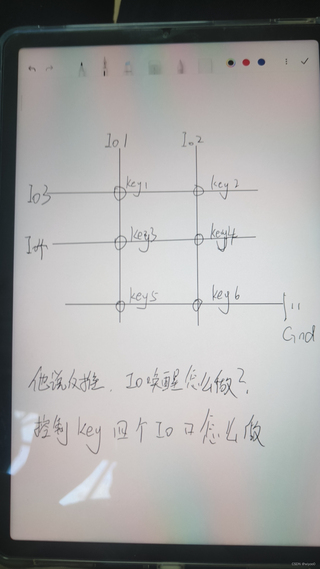 Io1 Io2
Io3 key1 key2
Io4 key3 key4
key5 key6
Gnd
他说反推, Io唤醒怎么做?
控制key 四个Io口怎么做